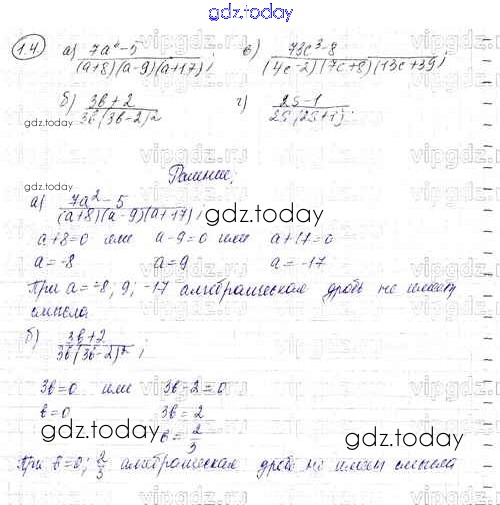 gdz.today
1.4 а) (7a² - 5)/((a+8)(a-9)(a+17)); в) (73c³ - 8)/((4c-2)(7c+8)(13c+39));
б) (3b+2)/(3b(3b-2)²) г) (2s-1)/(2s(2s+1));
gdz.today
Решение:
а) (7a² - 5)/((a+8)(a-9)(a+17));
gdz.today
a+8=0 или a-9=0 или a+17=0
a=-8 a=9 a=-17
При a=-8; 9; -17 алгебраическая дробь не имеет
смысла
б) (3b+2)/(3b(3b-2)²);
3b=0 или 3b-2=0
b=0 3b=2
gdz.today b=2/3 gdz.today
При b=0; 2/3 алгебраическая дробь не имеет смысла